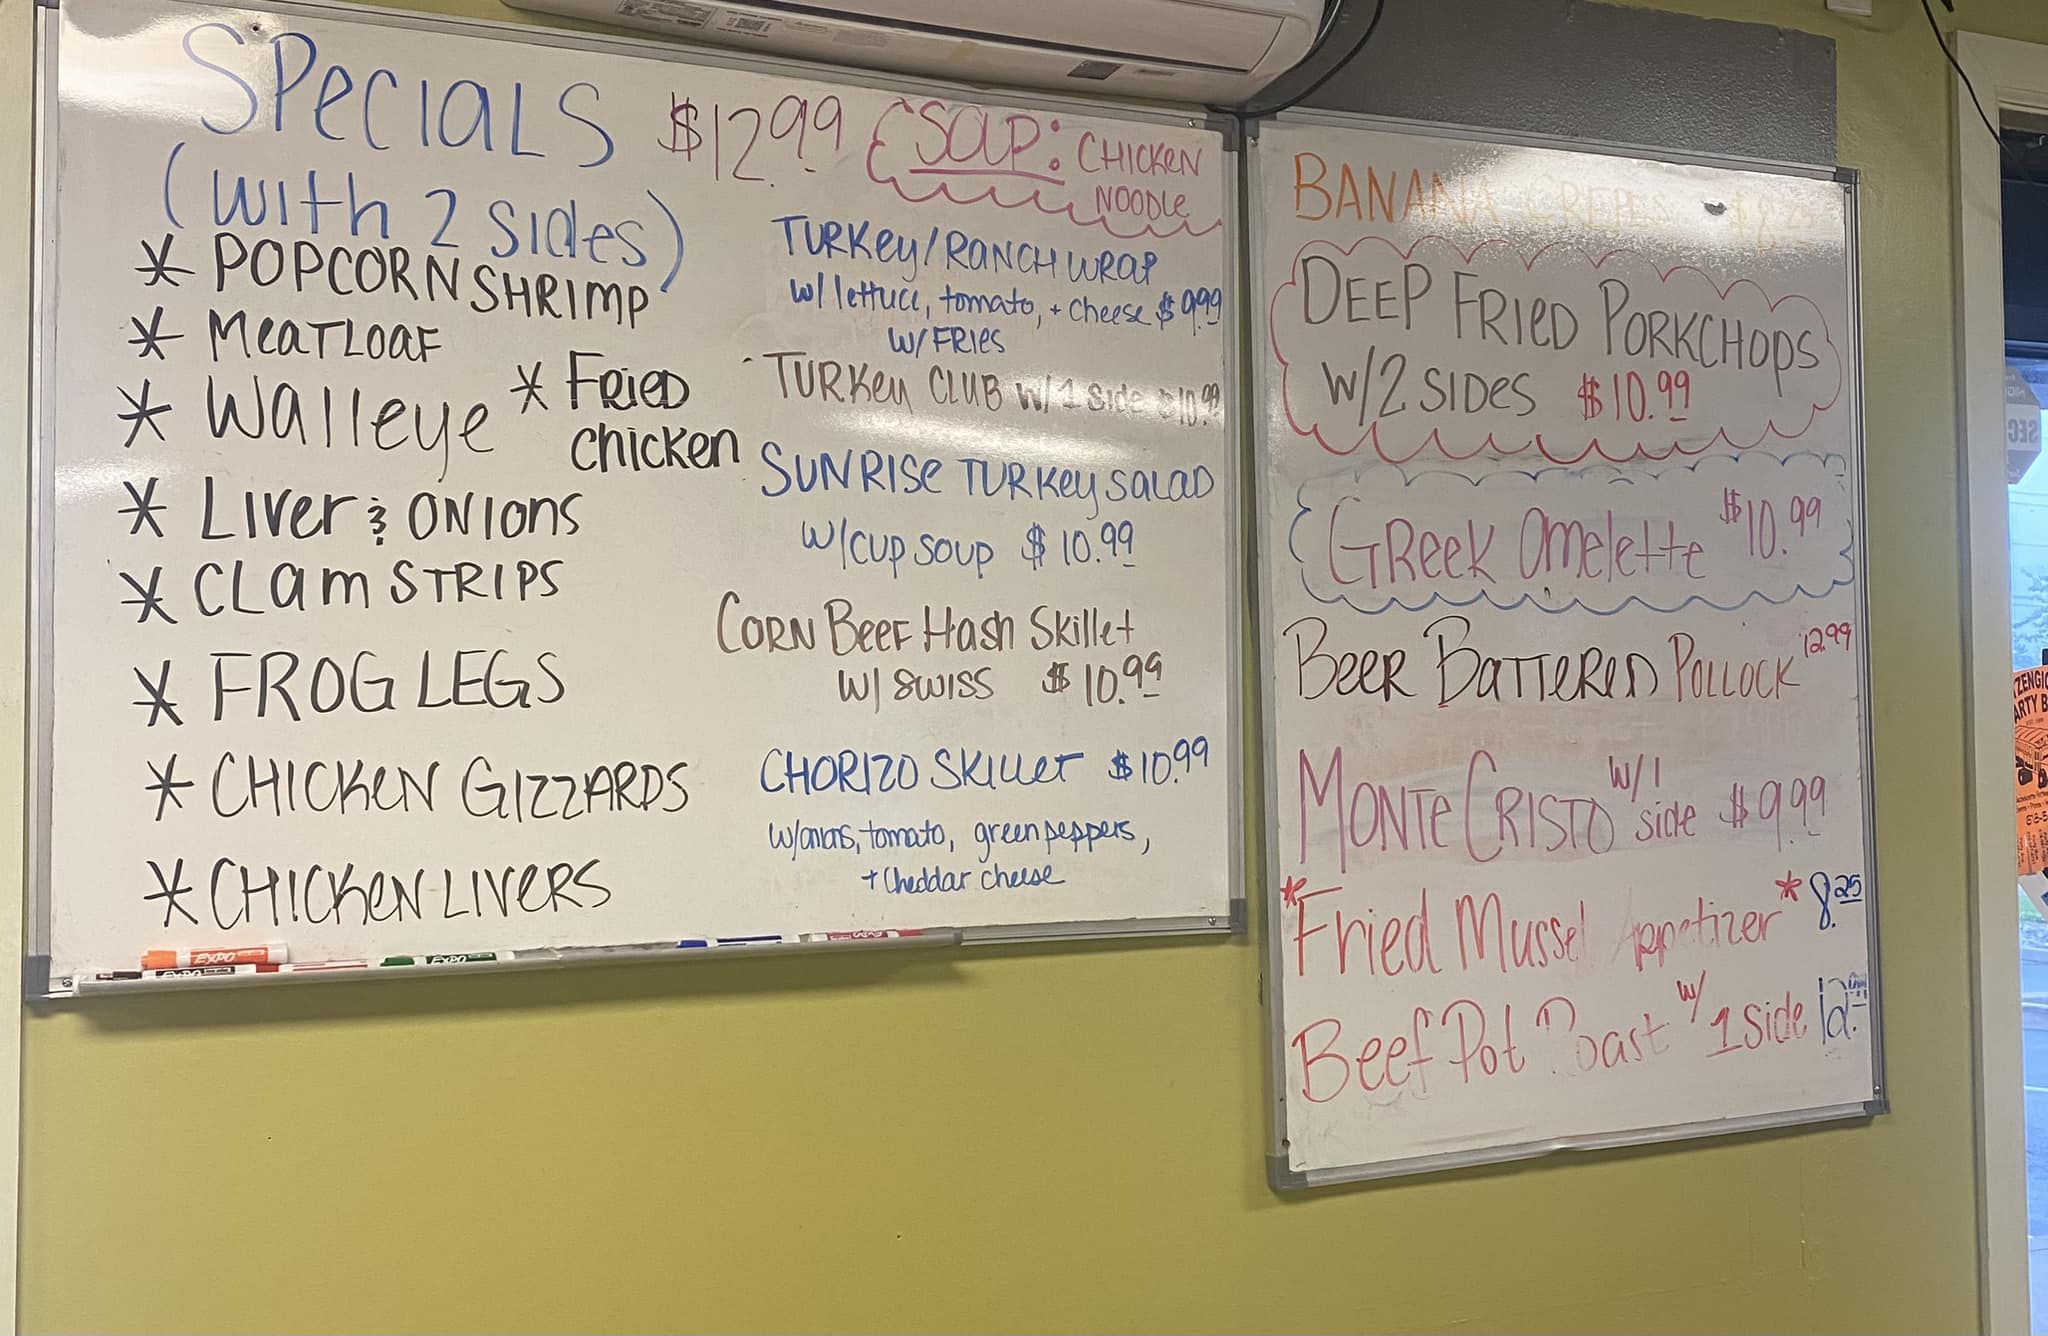 SPecIaLS $12.99
(with 2 sides)
* POPCORN SHRImp
* MeaTLOaF
* Walleye
* FRieD
chicken
* Liver & ONIONs
* CLam STRIPS
* FROG LEGS
* CHICKeN GIZZARDS
* CHICKeN LIVERS
SOUP: CHICKeN
NOODLe
TURKey/RANCH WRaP
w/ lettuce, tomato, + cheese $9.99
W/ FRIES
TURKey CLUB w/ 1 side $10.99
SUNRISe TURKey SaLaD
W/CUP SOUP $10.99
CORN BeeF Hash Skillet
W/ SWISS $10.99
CHORIZO SKILLeT $10.99
w/onions, tomato, green peppers,
+ Cheddar cheese
EXPO
EXPO
EXPO
BANANA CREPES $8.25
DEEP FRIeD PORKCHOPS
W/2 SIDeS $10.99
GReeK Omelette $10.99
BeeR BaTTeReD POLLOCK 12.99
MONTe CRISTO w/1 side $9.99
*Fried Mussel Appetizer* 8.25
Beef Pot Roast w/ 1 side 12.
SEC
ZENGIO
ARTY B